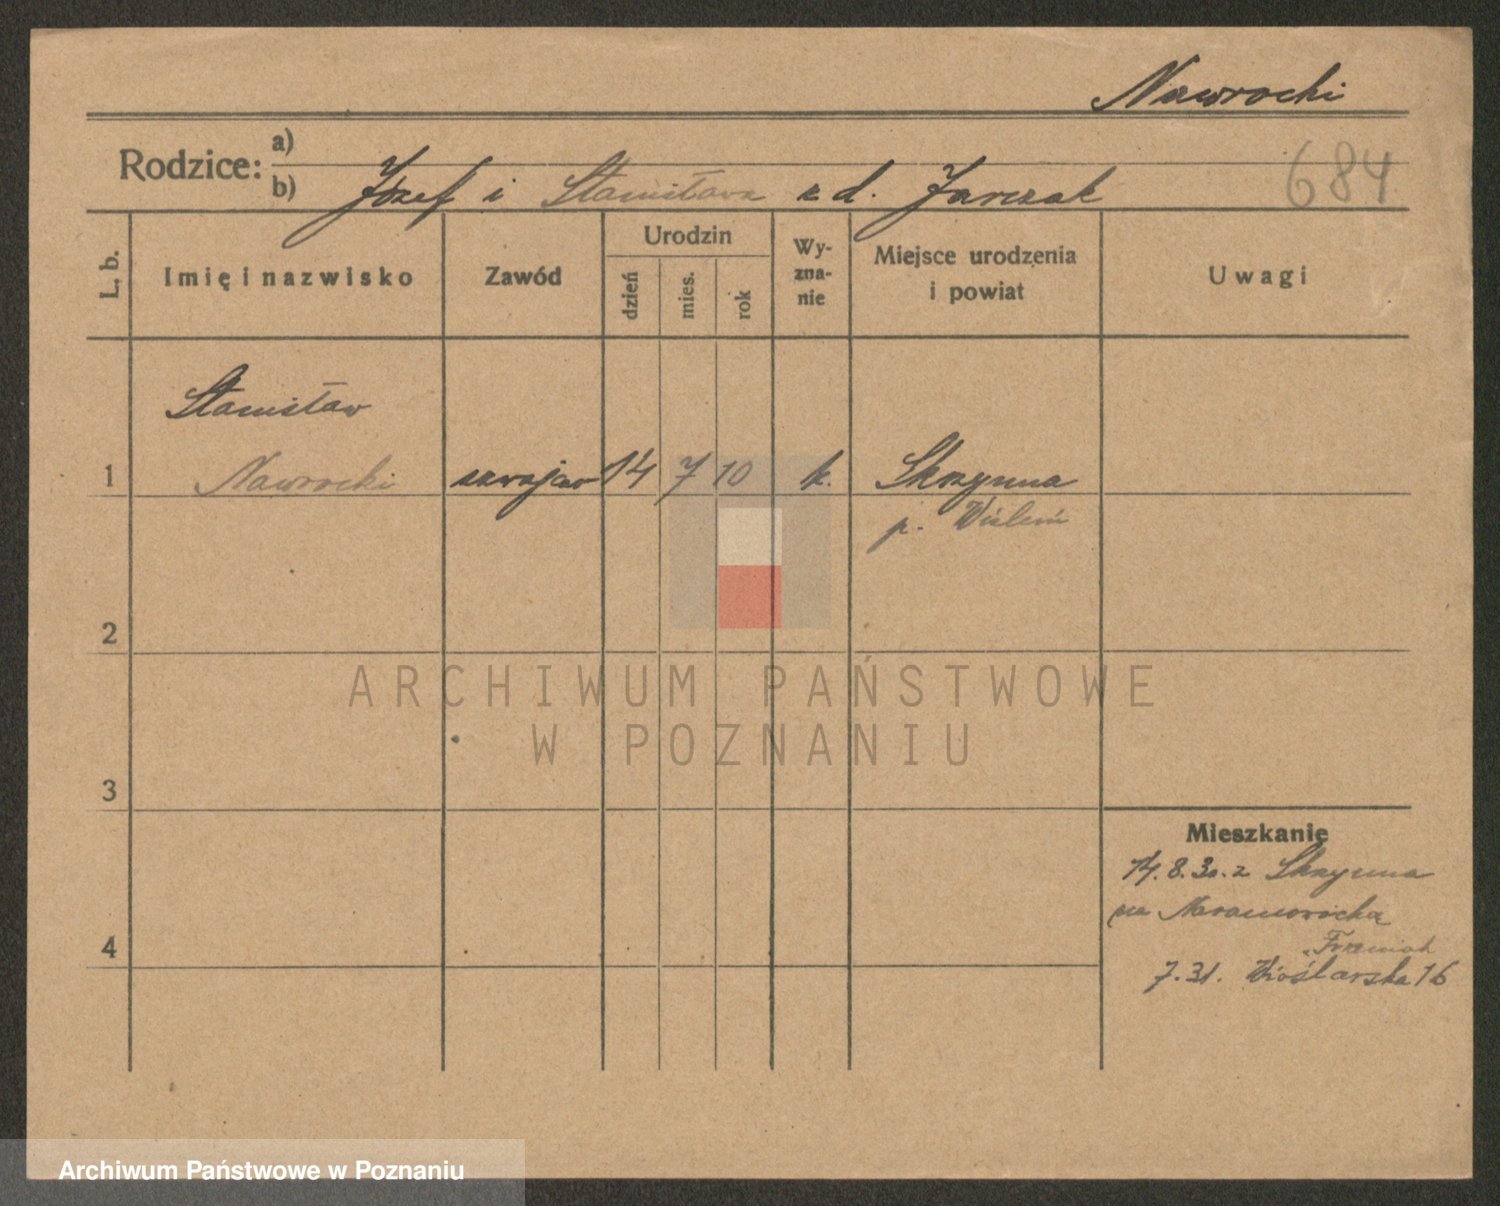 Nawrocki
684
Rodzice:
a)
b) Józef i Stanisława z d. Jarczak
L. b.
Imię i nazwisko
Zawód
Urodzin
dzień
mies.
rok
Wy-
zna-
nie
Miejsce urodzenia
i powiat
Uwagi
Stanisław
1 Nawrocki szwajcar 14 7 10 k. Skrzynna
p. Wieluń
2
3
4
ARCHIWUM PAŃSTWOWE
W POZNANIU
Mieszkanie
14.8.30. z Skrzynna
na
7.31. Wioślarska 16
Archiwum Państwowe w Poznaniu